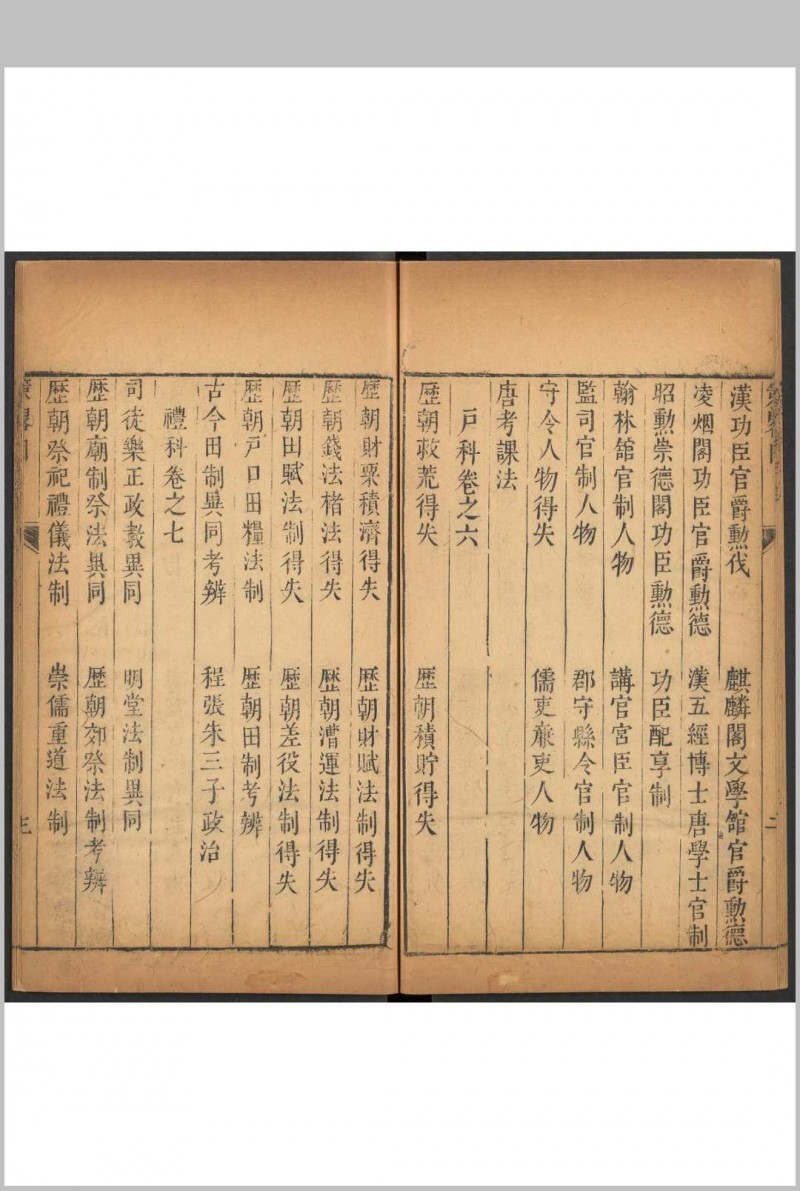 漢功臣官爵勲伐　麒麟閣文學舘官爵勲德
凌烟閣功臣官爵勲德　漢五經博士唐學士官制
昭勲崇德閣功臣勲德　功臣配享制
翰林舘官制人物　講官宮臣官制人物
監司官制人物　郡守縣令官制人物
守令人物得失　儒吏廉吏人物
唐考課法
戸科卷之六
歷朝救荒得失　歷朝積貯得失
二
歷朝財粟積濟得失　歷朝財賦法制得失
歷朝錢法楮法得失　歷朝漕運法制得失
歷朝田賦法制得失　歷朝差役法制得失
歷朝戸口田糧法制　歷朝田制考辨
古今田制異同考辨　程張朱三子政治
禮科卷之七
司徒樂正政教異同　明堂法制異同
歷朝廟制祭法異同　歷朝郊祭法制考辨
歷朝祭祀禮儀法制　崇儒重道法制
三